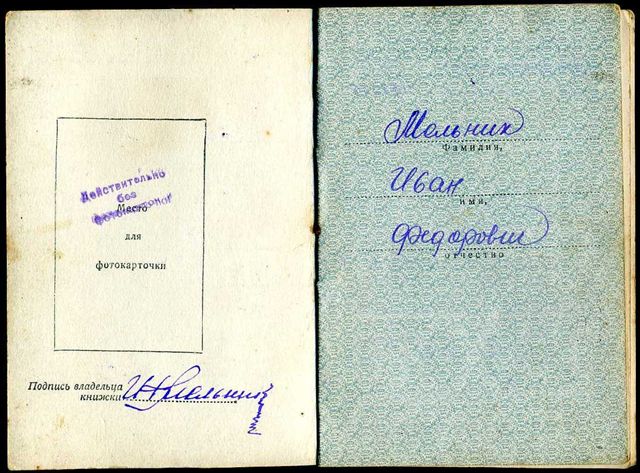 Действительно
без
фотокарточки
Место
для
фотокарточки
Подпись владельца
книжки И Мельник
Мельник
Фамилия,
Иван
имя,
Федорович
отчество